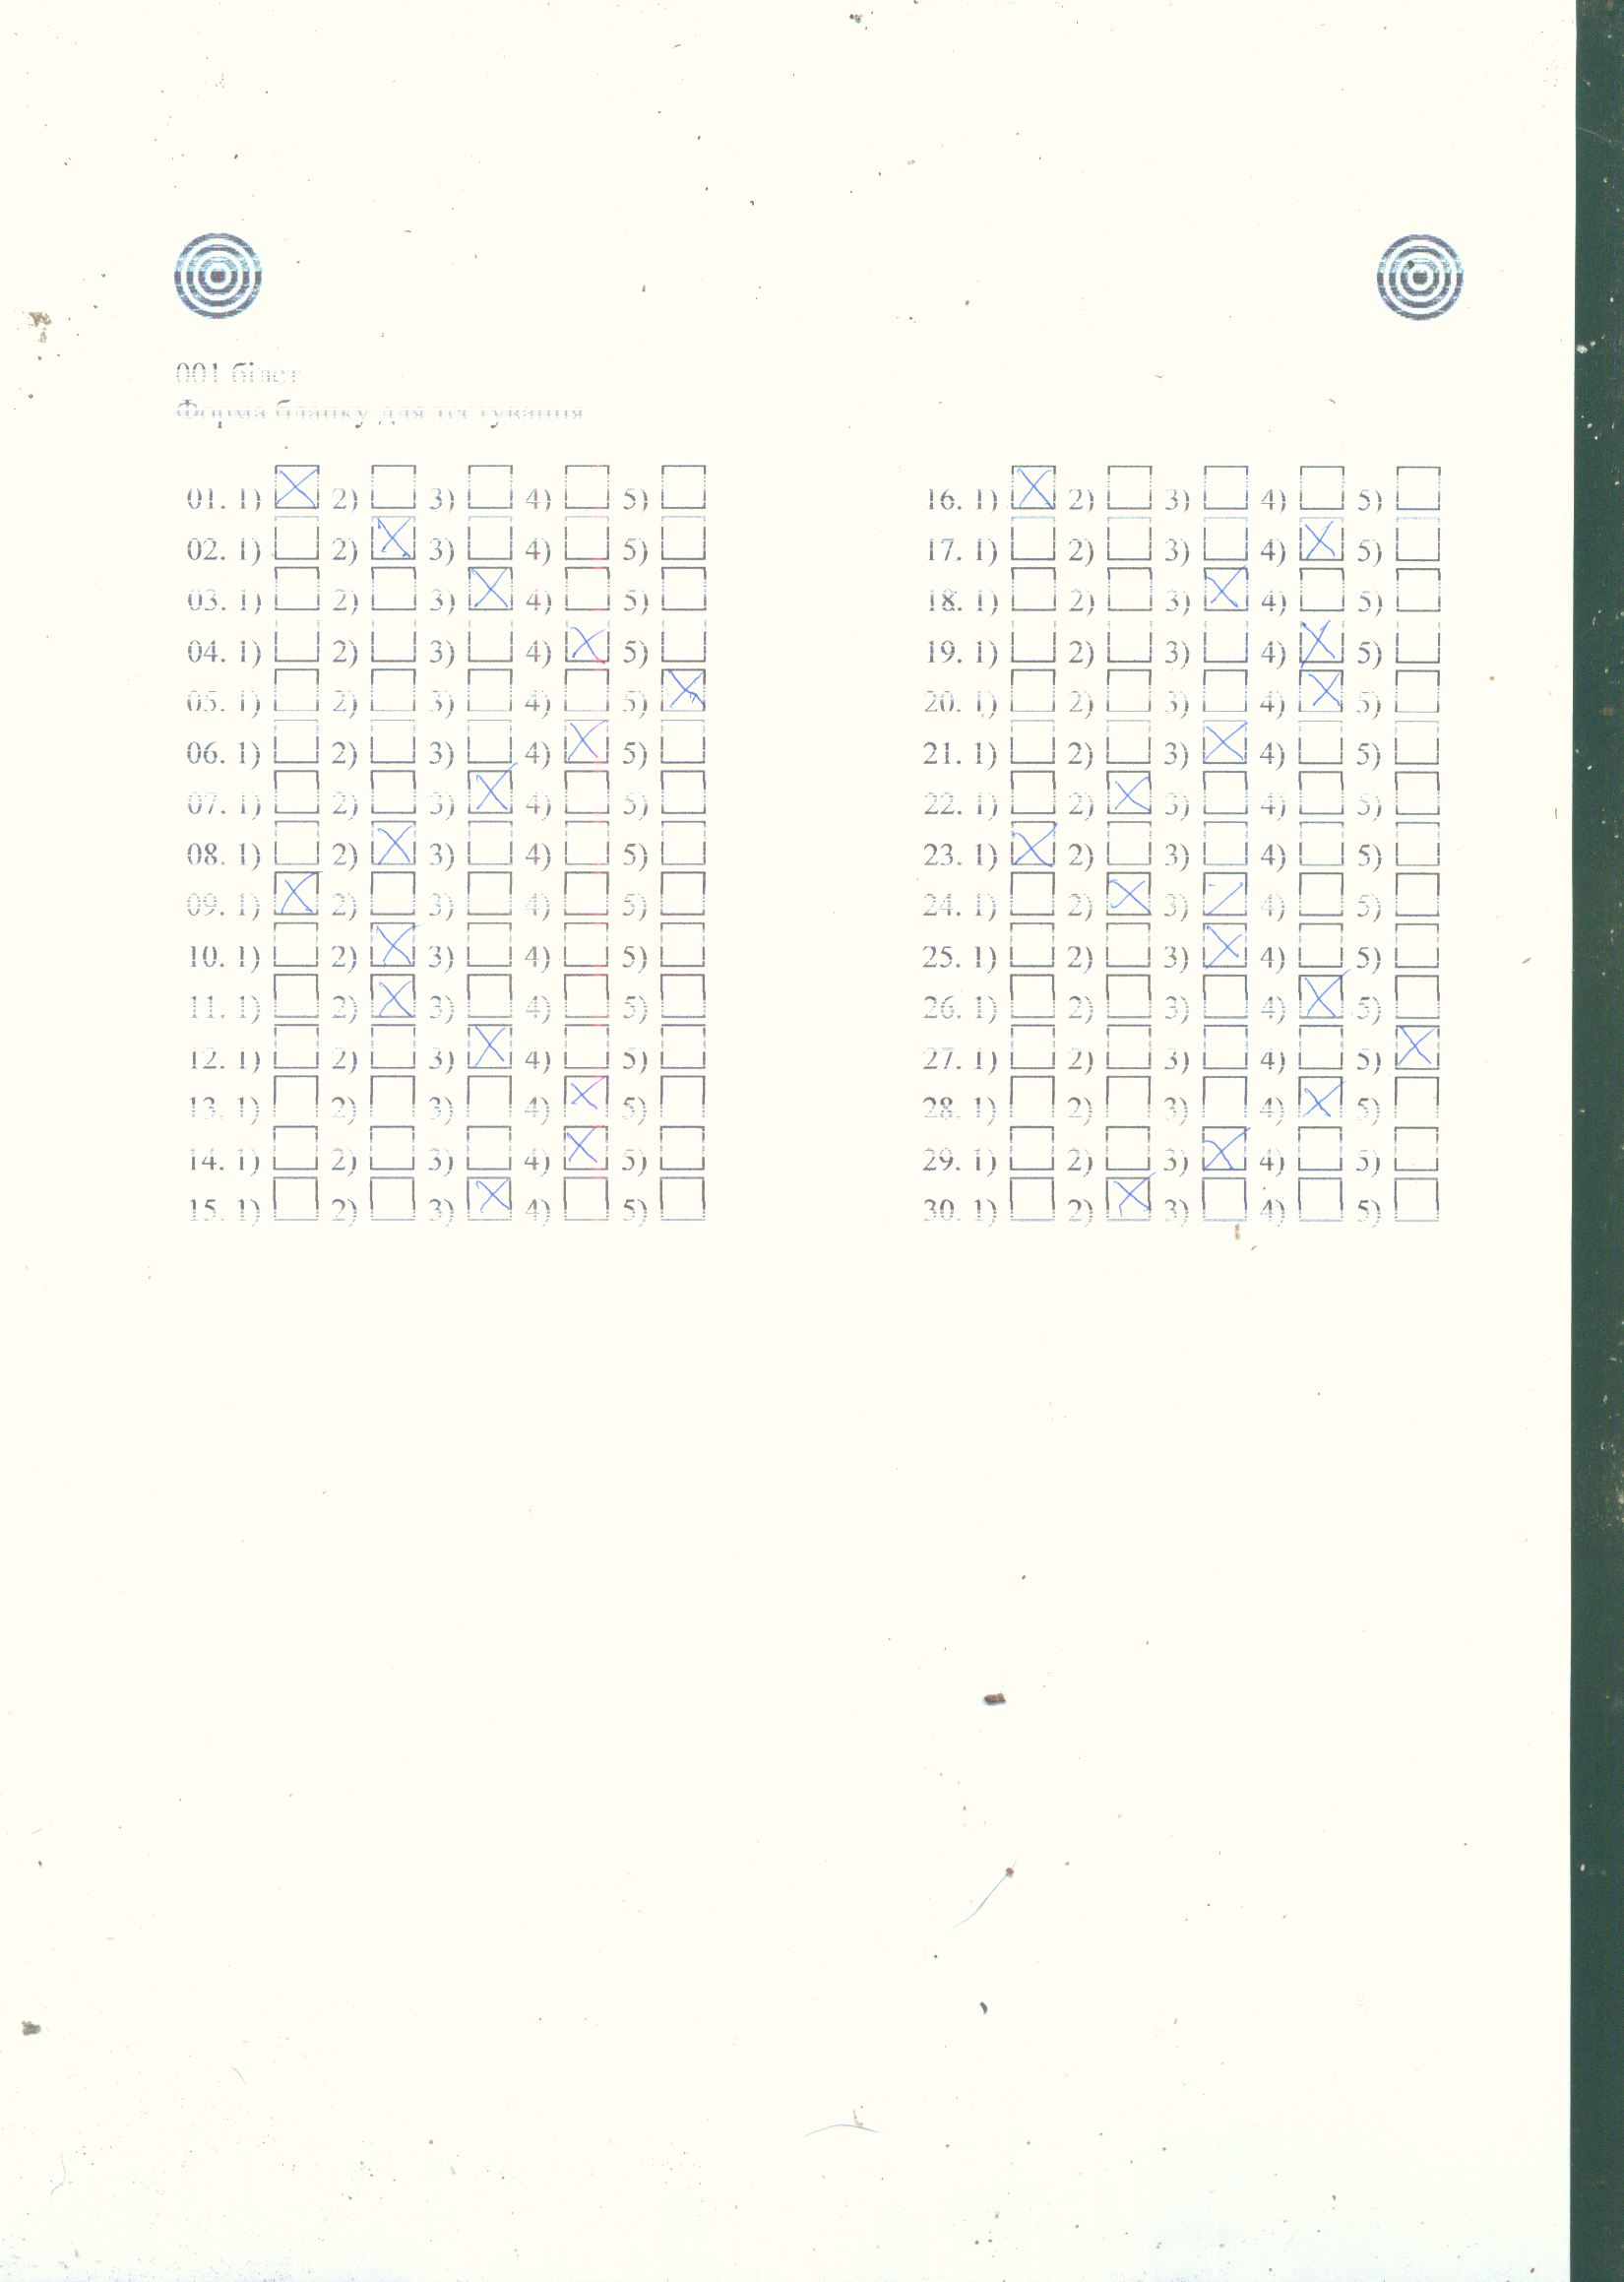 001 білет
Форма бланку для тестування
01. 1) 2) 3) 4) 5)
02. 1) 2) 3) 4) 5)
03. 1) 2) 3) 4) 5)
04. 1) 2) 3) 4) 5)
05. 1) 2) 3) 4) 5)
06. 1) 2) 3) 4) 5)
07. 1) 2) 3) 4) 5)
08. 1) 2) 3) 4) 5)
09. 1) 2) 3) 4) 5)
10. 1) 2) 3) 4) 5)
11. 1) 2) 3) 4) 5)
12. 1) 2) 3) 4) 5)
13. 1) 2) 3) 4) 5)
14. 1) 2) 3) 4) 5)
15. 1) 2) 3) 4) 5)
16. 1) 2) 3) 4) 5)
17. 1) 2) 3) 4) 5)
18. 1) 2) 3) 4) 5)
19. 1) 2) 3) 4) 5)
20. 1) 2) 3) 4) 5)
21. 1) 2) 3) 4) 5)
22. 1) 2) 3) 4) 5)
23. 1) 2) 3) 4) 5)
24. 1) 2) 3) 4) 5)
25. 1) 2) 3) 4) 5)
26. 1) 2) 3) 4) 5)
27. 1) 2) 3) 4) 5)
28. 1) 2) 3) 4) 5)
29. 1) 2) 3) 4) 5)
30. 1) 2) 3) 4) 5)